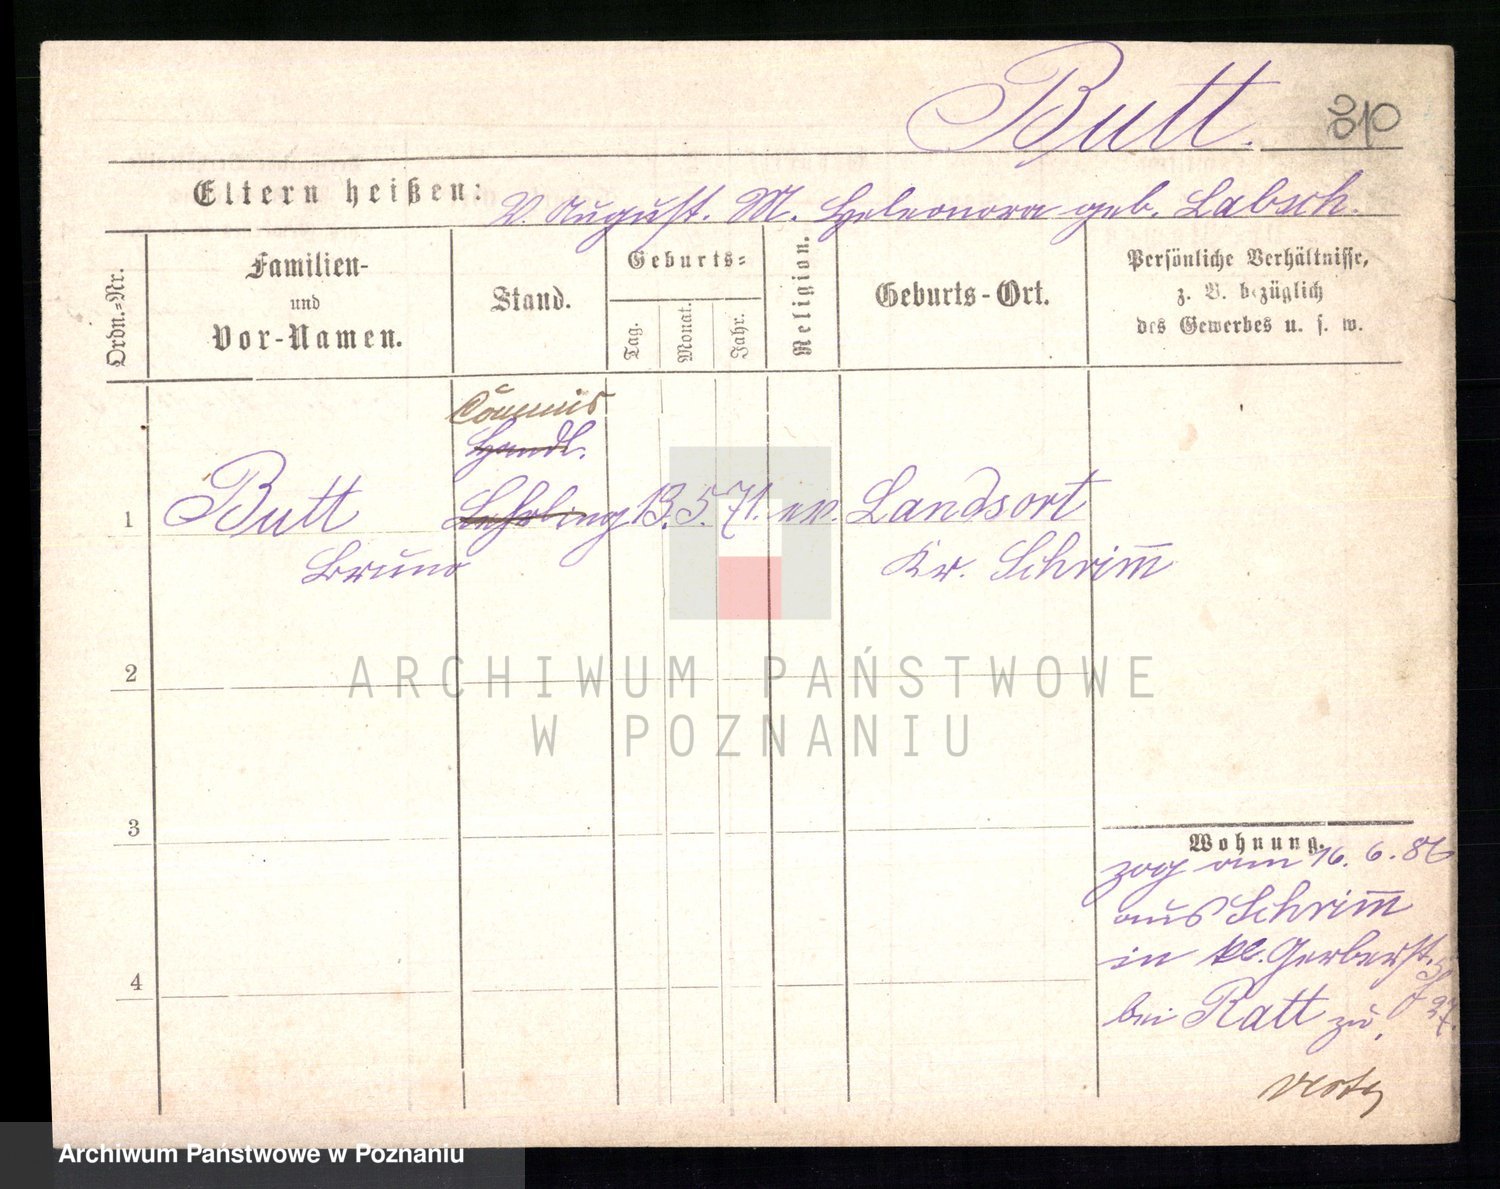 Butt. 310
Eltern heißen: V. August. M. Heleonora geb. Labsch.
Ordn.-Nr.
Familien-
und
Vor-Namen.
Stand.
Geburts-
Tag.
Monat.
Jahr.
Religion.
Geburts-Ort.
Persönliche Verhältnisse,
z. B. bezüglich
des Gewerbes u. s. w.
Commis
Handl.
1 Butt Lehrling 13. 5. 71. ev. Landsort
Bruno Kr. Schrim̅
2
3
4
Wohnung.
zog am 16. 6. 86
aus Schrim̅
in kl. Gerberst.
bei Ratt zu.
ARCHIWUM PAŃSTWOWE
W POZNANIU
Archiwum Państwowe w Poznaniu